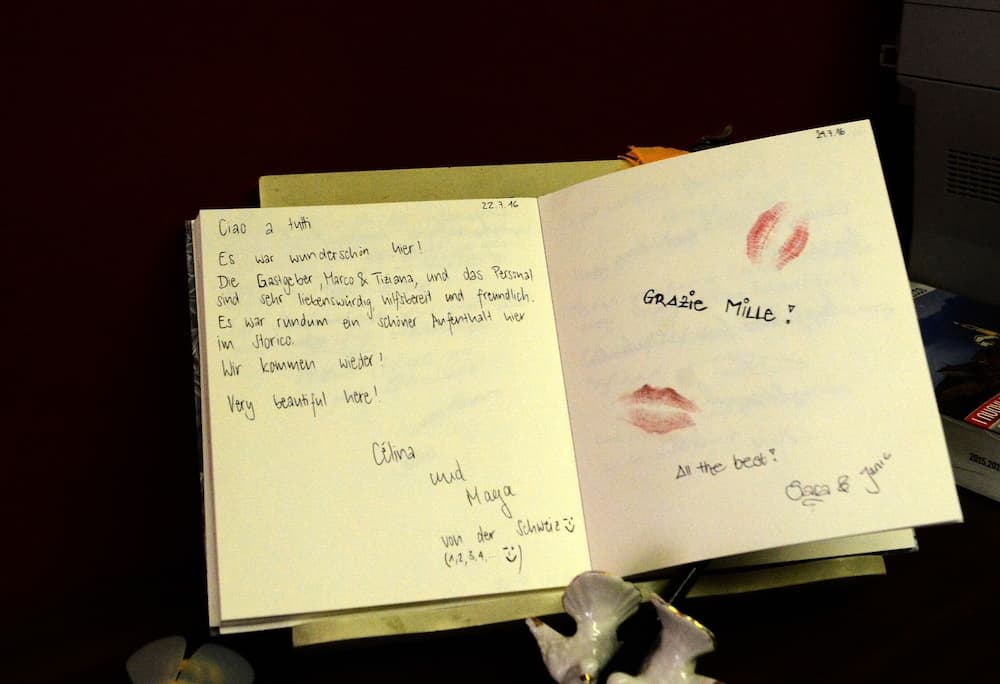 22.7.16
Ciao a tutti
Es war wunderschön hier!
Die Gastgeber, Marco & Tiziana, und das Personal
sind sehr liebenswürdig, hilfsbereit und freundlich.
Es war rundum ein schöner Aufenthalt hier
im Storico.
Wir kommen wieder!
Very beautiful here!
Célina
und
Maya
von der Schweiz
(1,2,3,4,...)
29.7.16
GRAZIE MILLE!
All the best!
& Janic
2015.201